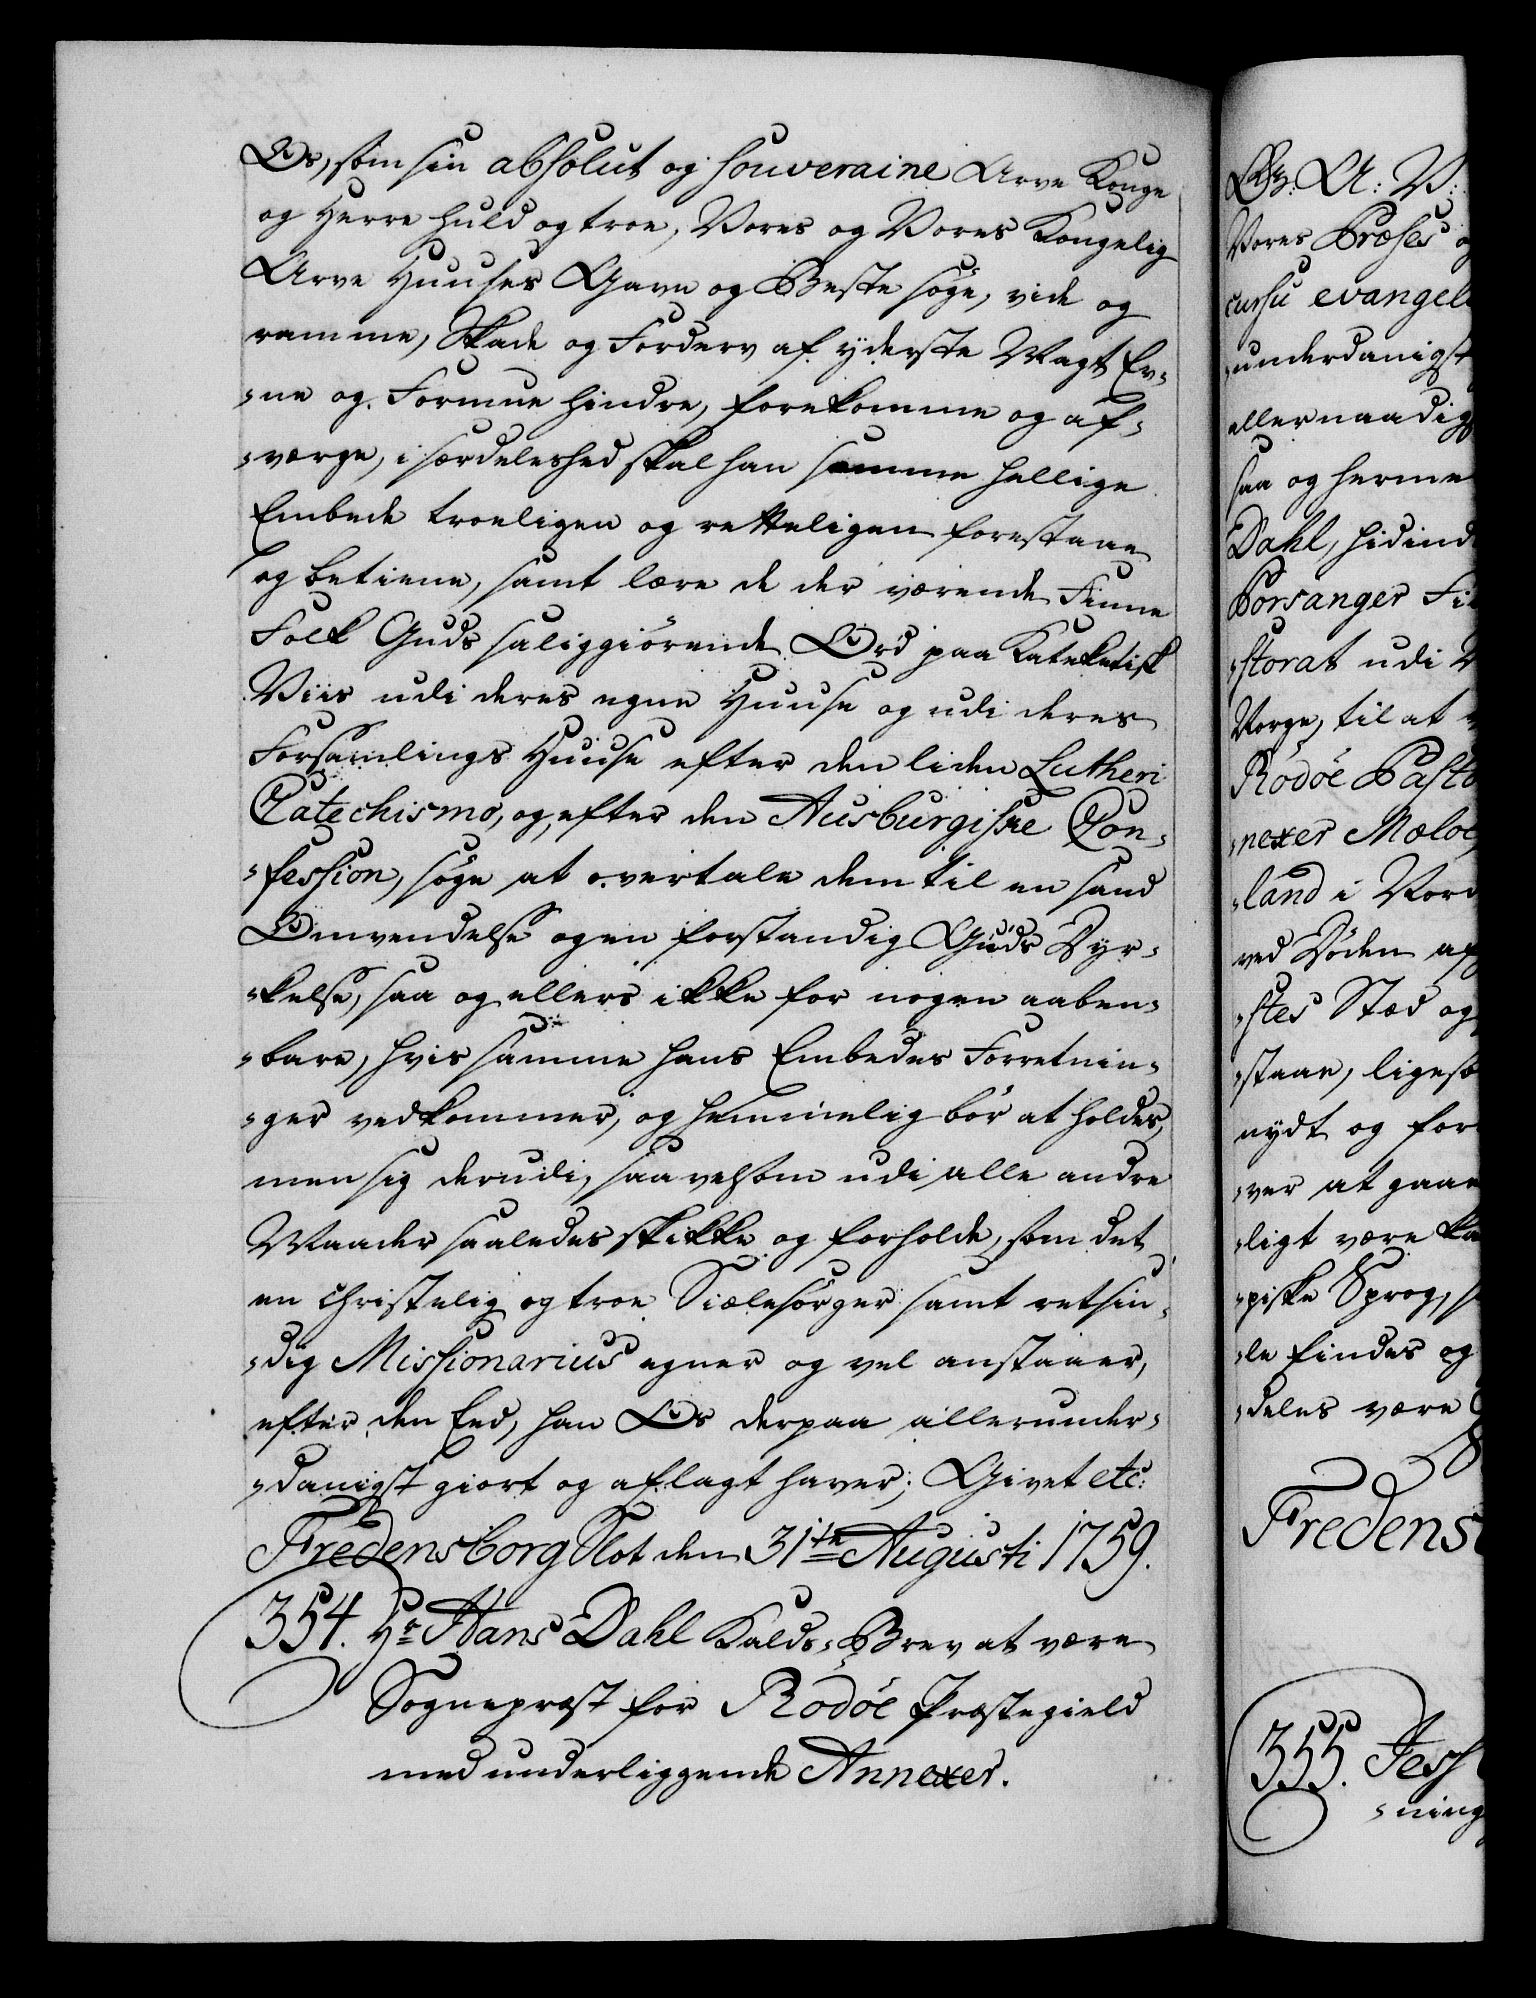 Os, som sin absolut og souveraine Arve Konge
og Herre huld og troe, Vores og Vores Kongelig
Arve Huuses Gavn og Beste søge, vide og
ramme, Skade og Forderv af yderste Magt Ev-
-ne og Formue hindre, forekomme og af-
-værge, i særdeleshed skal han samme hellige
Embede troeligen og retteligen forestaae
og betiene, samt lære de der værende Finne
Folk Guds saliggiørende Ord paa Kateketisk
Viis udi deres egne Huuse og udi deres
Forsamlings Huuse efter den liden Lutheri
Catechismo, og efter den Ausburgiske Con-
-fession, søge at overtale dem til en sand
Omvendelse og en forstandig Guds Dyr-
-kelse, saa og ellers ikke for nogen aaben-
-bare, hvis samme hans Embedes Forretnin-
-ger vedkommer, og hemmelig bør at holdes,
men sig derudi, saavelsom udi alle andre
Maader saaledes skikke og forholde, som det
en christelig og troe Siælesørger samt retsin-
-dig Missionarius egner og vel anstaaer,
efter den Eed, han Os derpaa allerunder-
-danigst giort og aflagt haver; Givet etc:
Fredensborg Slot den 31te Augusti 1759.
354. Hr Hans Dahl Kalds-Brev at være
Sognepræst for Rodøe Præstegield
med underliggende Annexer.
Gr: A: V:
Vores Præses o
cursu evangel
-underdanigst
allernaadigs
saa og herme
Dahl, hidind
Porsanger Fi
-storat udi
Norge, til at
Rodøe Pasto
-nexer Meløe
-land i Nord
ved Døden af
-stes Stæd og
-staae, ligeso
nydt og for
-ver at gaae
-ligt være ka
-piske Sprog, s
-le findes og
-deles være
Fredens
355. Jess
-ning